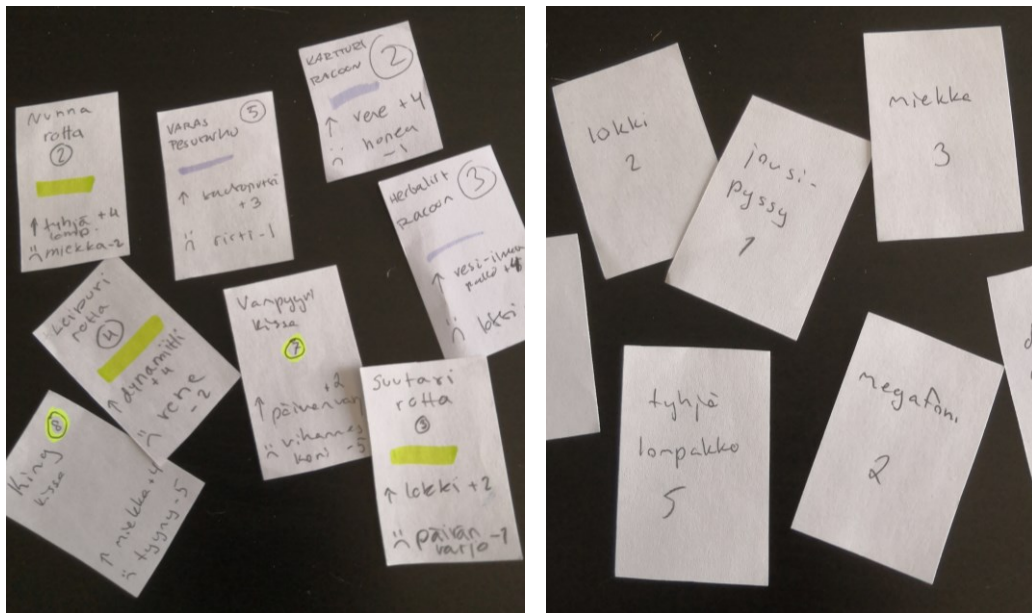 Nunna
rotta
2
↑ tyhjä +4
lomp.
miekka -2
VARAS
PESUKARHU
5
+3
-1
KARTTURI
RACOON
2
↑ vene +4
-1
Herbalist
Racoon
3
↑ vesi-ilma
lokki
Leipuri
rotta
4
↑ dynamitti
+4
vene
-2
Vampyyri
kissa
7
+2
↑ päivänvarj
vihannes
koni -5
Suutari
rotta
3
↑ lokki +2
päivän
varjo -1
King
kissa
8
↑ miekka +4
tyyny -5
lokki
2
jousi-
pyssy
1
miekka
3
tyhjä
lompakko
5
megafoni
2